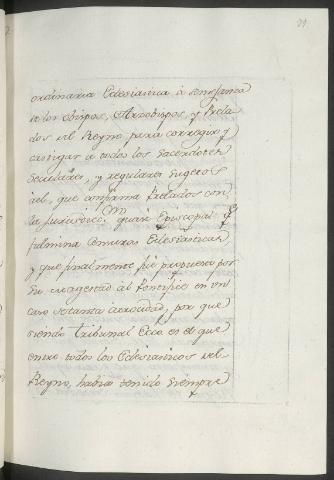 21
ordinaria Eclesiastica à semejanza
de los Obispos, Arzobispos, y Prela
dos del Reyno para corregir y
castigar à todos los Sacerdotes
Seculares, y regulares sugetos
à el, que confirma Prelados con
la jurisdicc.on quasi Episcopal q.e
fulmina Censuras Eclesiasticas
y que finalmente fue propuesto por
Su Magestad al Pontifice en un
caso de tanta atrocidad, por que
siendo Tribunal Ecco. es el que
entre todos los Eclesiasticos del
Reyno, habia tenido siempre